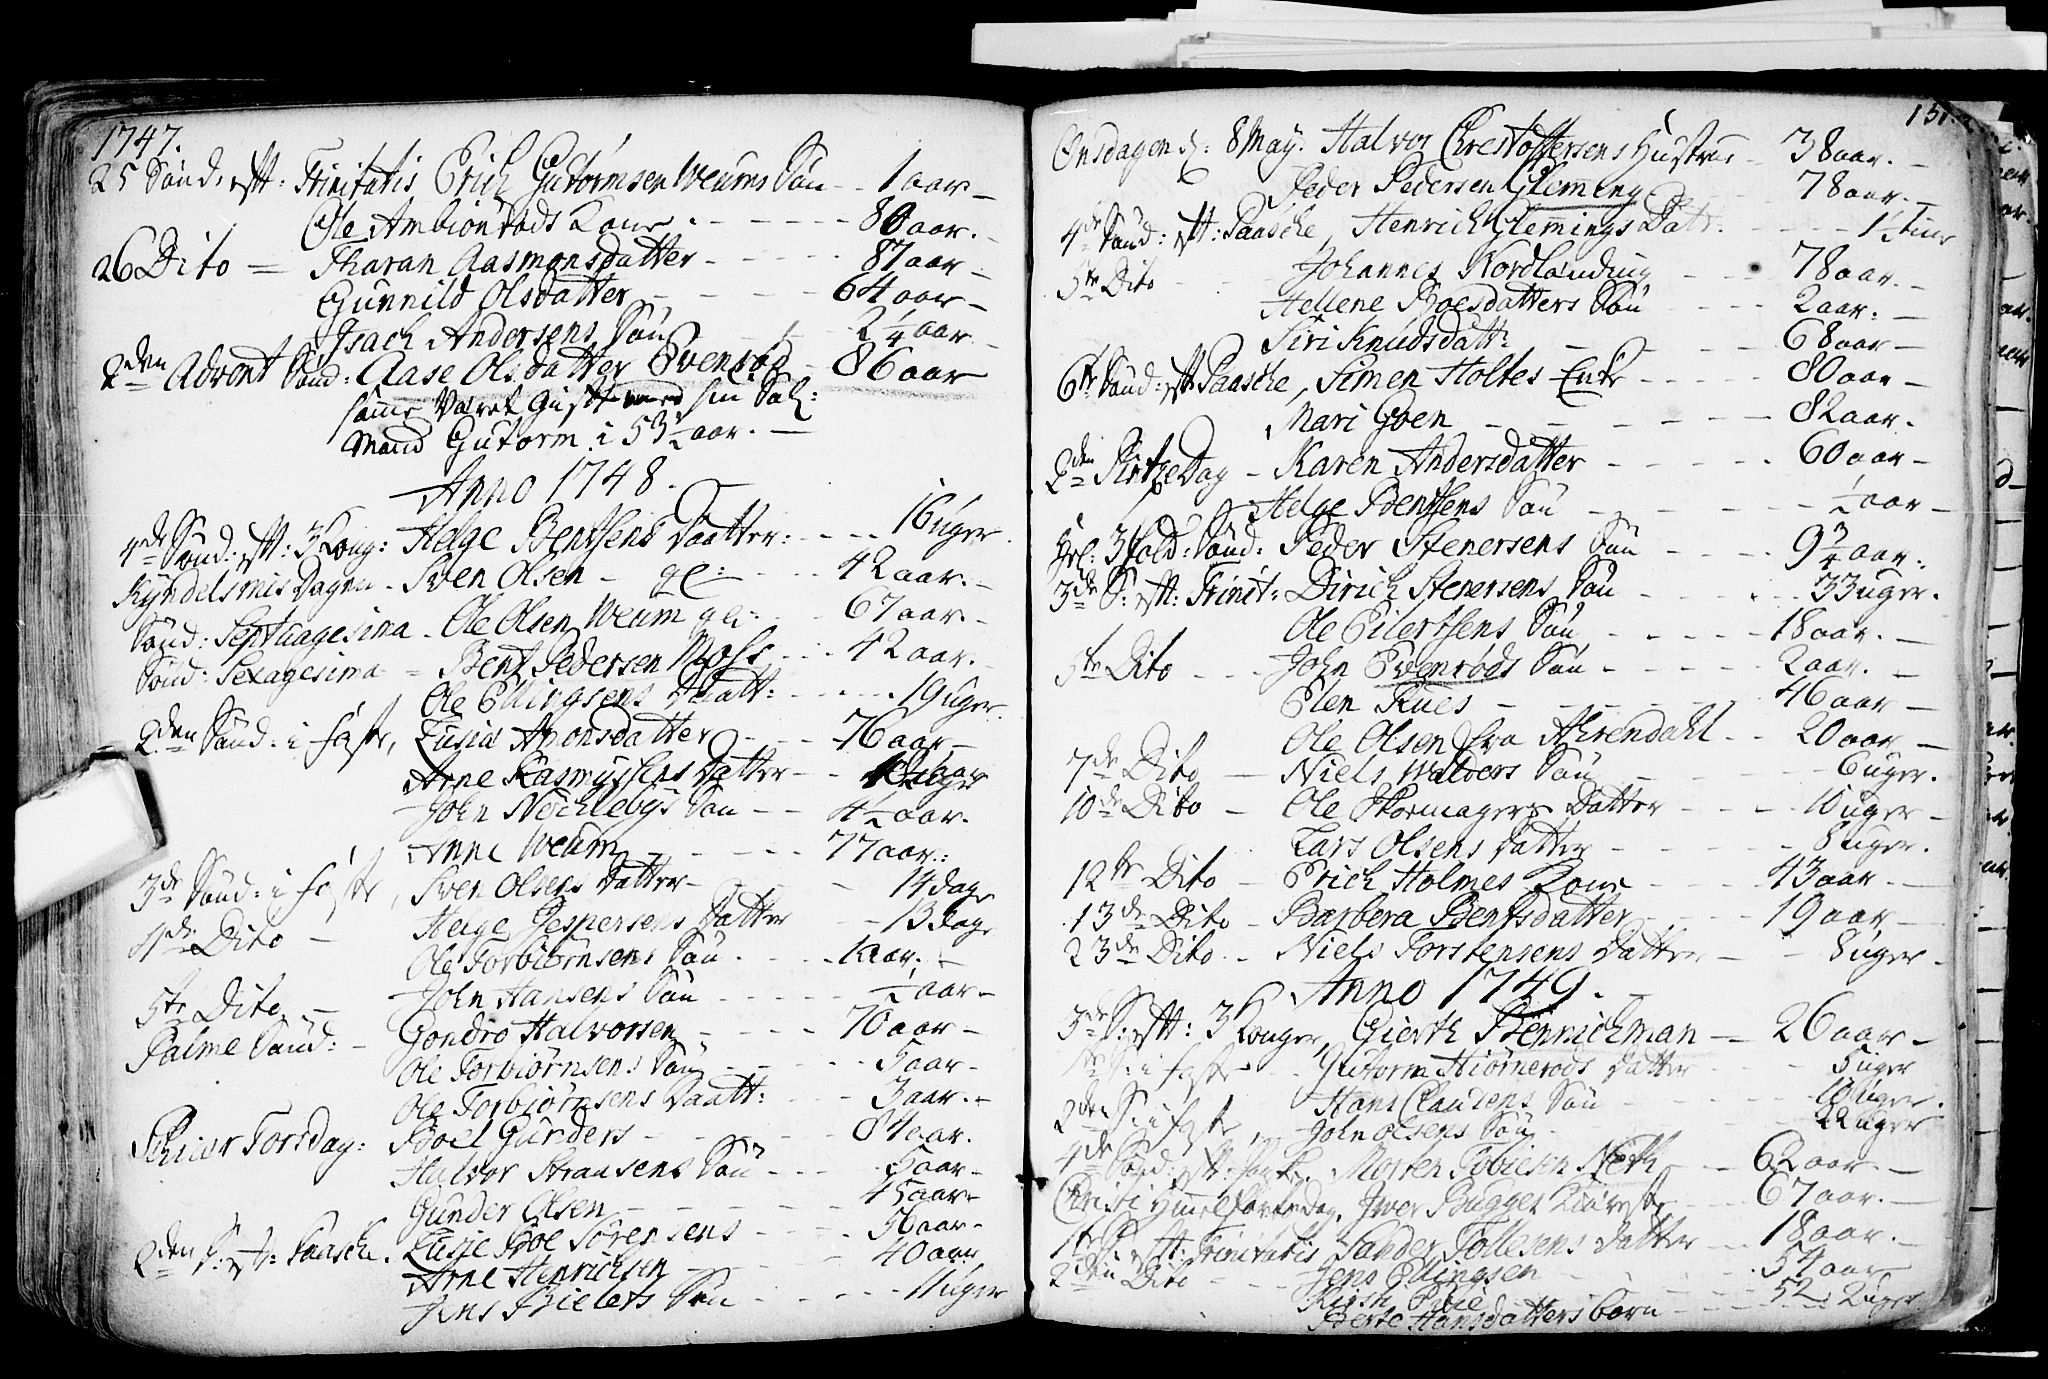 1747.
25 Sønd. Eft: Trinitatis Erich Gutormsen Weums Søn - - 1 aar -
Ole Ambiönröds Kone - - - - 80 aar. -
26 Dito = Tharan Aasmonsdatter - - - - 87 aar -
Gunnild Olsdatter - - - - 64 aar -
Isach Andersens Søn - - 2 1/4 aar -
2den Advent Sønd: Aase Olsdatter Evenröd - 86 aar
samme været Gift med sin Sal:
Mand Gutorm i 53 1/2 aar. -
Anno 1748.
4de Sønd: Eft: 3 Kong: Helge Bentsens Daatter: - - - - 16 uger.
Kyndelsmis Dagen - Sven Olsen - gl: - - - 42 aar. -
Sønd: Septuagesima - Ole Olsen Weum gl: - - 67 aar. -
Sønd: Sexagesima = Bent Pedersen Moss - - - 42 aar. -
Ole Ellingsens Daatt: - - - - 19 uger.
2den Sønd: i Faste, Lusia Amonsdatter - - - 76 aar -
Arne Rasmussens Datter - -
John Nechlebys Søn - - 4 1/2 aar.
Anne Weum - - - - 77 aar.:
3de Sønd: i Faste, Sven Olsens Datter - - 14 dage
4de Dito - Helge Jespersens Datter - - 13 dage
Ole Torbiørnsens Søn - - - - 1 aar. -
5te Dito - John Hansens Søn - - - - 1/2 aar -
Palme Sønd: - Gondro Halvorsen - - - - 70 aar -
Ole Torbiørnsens Søn - - - - 5 aar -
Ole Torbiørnsens Daatt: - - 3 aar. -
Schier Torsdag: Boel Gunders - - - - 84 aar.
Halvor Stransens Søn - - - 5 aar -
Gunder Olsen - - - - 45 aar -
2den S: Eft: Paasche. Lusje Boe Sørensens - - - 56 aar -
Arne Henrichsen - - - - 40 aar
Jens Bielets Søn - - - - 11 uger
151.
Onsdagen d: 8 May. Halvor Christoffersens Hustrue - 38 aar. -
Peder Pedersen Glemming - - 78 aar. -
4de Sønd: Eft: Paasche, Henrich Glemmings Datr. - - - 1 1/2 Time
5te Dito - - Johannes Nordlanding - - 78 aar. -
Hellene Boesdatters Søn - - - 2 aar. -
Siri Knudsdatt: - - - - 68 aar -
6te Sønd: Eft Paasche, Simen Holtes Enke - - - - 80 aar -
Mari Goen - - - - 82 aar.
2den Pintzedag - Karen Andersdatter - - - - 60 aar -
Helge Bentsens Søn - - - - 1/2 aar -
Hel: 3fold: Sønd: Peder Stenersens Søn - - - - 9 3/4 aar.
3de S: Eft: Trinit: Dirich Stenersens Søn - - - - 33 uger.
Ole Eilertsens Søn - - - - 18 aar. -
5te Dito - - - John Evenröds Søn - - - - 2 aar. -
Elen Rues - - - - 46 aar -
Ole Olsen fra Ahrendahl - - 20 aar -
7de Dito - Niels Walders Søn - - - - 6 uger.
10de Dito - Ole Skomagers Datter - - - 10 uger -
Lars Olsens Datter - - - - 8 uger.
12te Dito - Erich Holmes Kone - - - - 43 aar. -
13de Dito - Barbera Bentsdatter - - - 19 aar -
23de Dito - Niels Torstensens Datter - - 8 uger -
Anno 1749. -
3de S: Eft: 3 Konger, Gierth Henrichman - 26 aar -
1te S: i Faste - - Gutorm Hiørnerods Datter - - - 5 uger
2den S: i Faste, Hans Claudens Søn - - - - 10 uger.
John Olsens Søn - - - - 22 uger
4de Sønd: Eft: Paaske, Morten Tobiesen Neth - - 62 aar. -
Christi Himmelfartsdag, Iver Bugges - - 67 aar. -
1te S: Eft: Trinitatis Sander Tollesens Datter - - 18 aar. -
2den Dito - - Jens Ellingsen - - - - 54 aar -
Kirsti - - - - 52
Berte Hansdatters barn - - - - 2 uger